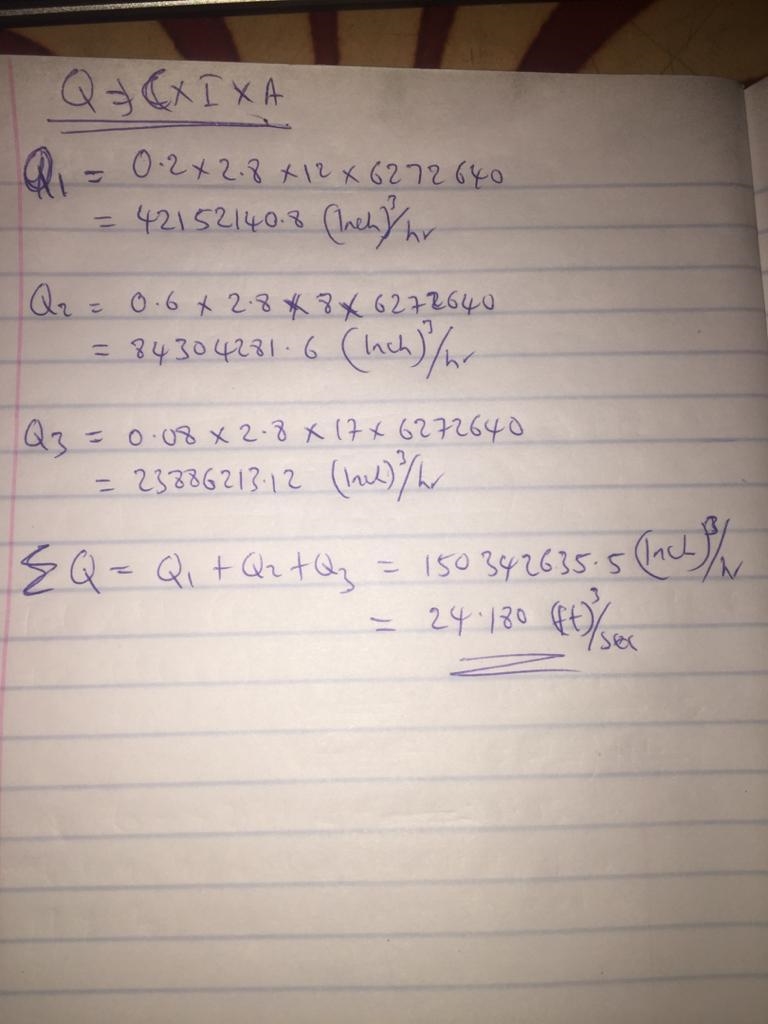 Q = C x I x A
Q1 = 0.2 x 2.8 x 12 x 6272640
= 42152140.8 (Inch)³/hr
Q2 = 0.6 x 2.8 x 8 x 6272640
= 84304281.6 (Inch)³/hr
Q3 = 0.08 x 2.8 x 17 x 6272640
= 23886213.12 (Inch)³/hr
∑Q = Q1 + Q2 + Q3 = 150342635.5 (Inch)³/hr
= 24.180 (ft)³/sec